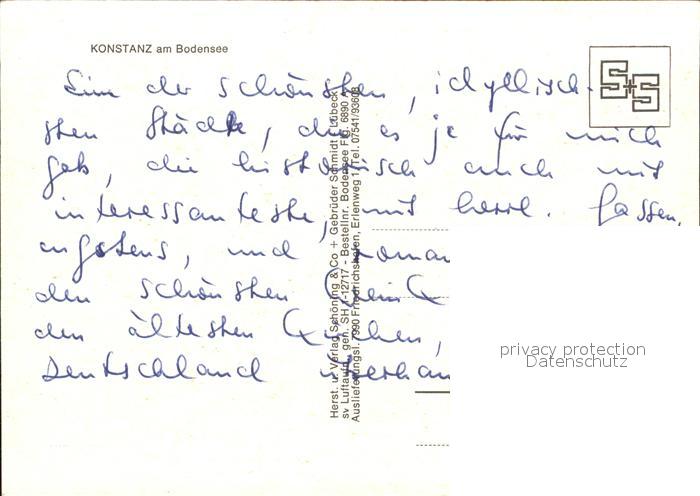 KONSTANZ am Bodensee
S+S
Eine der schönsten, idyllisch-
sten Städte, die es je für mich
gab, die historisch auch mit
interessanteste, mit herrl. Gassen,
und roman
den schönsten
den ältesten Kirchen,
Deutschland überhau
Herst. u. Verlag Schöning & Co + Gebrüder Schmidt · Lübeck
sv Luftaufn. gen. SH 1-12717 - Bestellnr. Bodensee Flg. 6890
Auslieferungsl. 7990 Friedrichshafen, Erlenweg 1, Tel. 07541/93608
privacy protection
Datenschutz